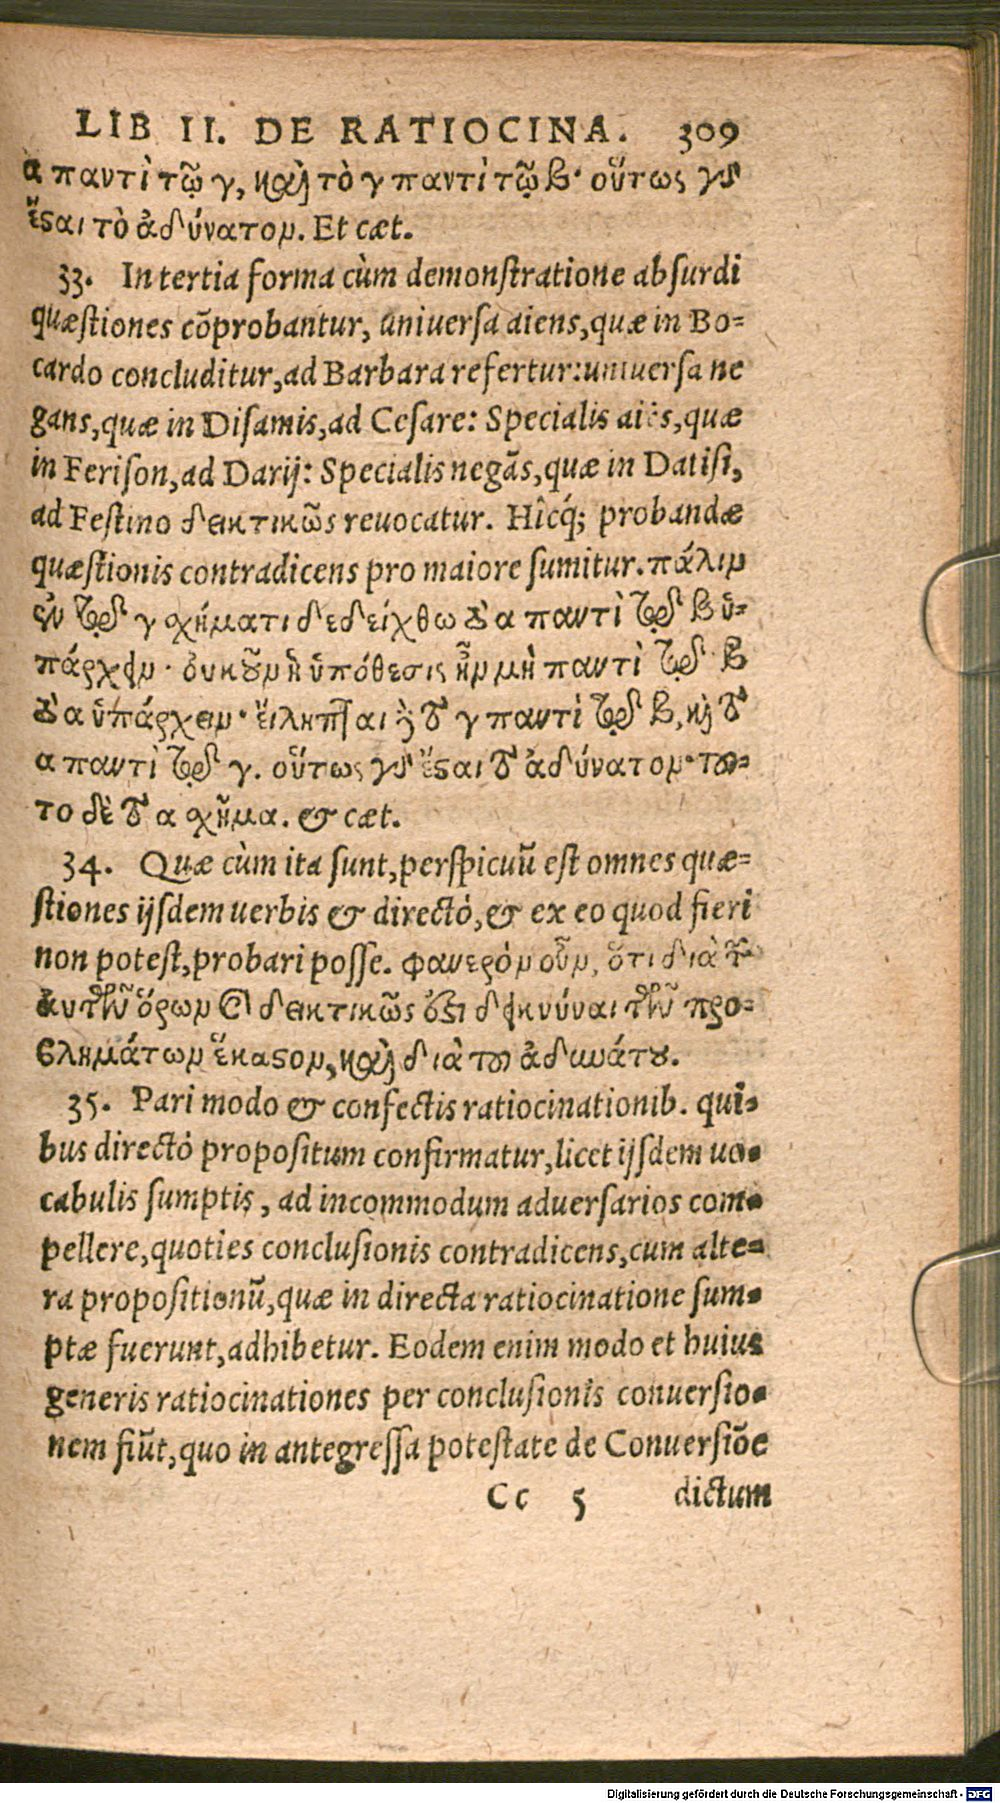 LIB II. DE RATIOCINA. 309
α παντὶ τῷ γ, καὶ τὸ γ παντὶ τῷ β· οὕτως γὰρ
ἔϛαι τὸ ἀδύνατομ. Et cæt.
33. In tertia forma cùm demonſtratione abſurdi
quæſtiones cōprobantur, uniuerſa aiens, quæ in Bo=
cardo concluditur, ad Barbara refertur: uniuerſa ne
gans, quæ in Diſamis, ad Ceſare: Specialis aiēs, quæ
in Feriſon, ad Darij: Specialis negās, quæ in Datiſi,
ad Feſtino δεικτικῶς reuocatur. Hîcq́; probandæ
quæſtionis contradicens pro maiore ſumitur. πάλιμ
ἐν τῷ γ χήματι δεδείχθω τὸ α παντὶ τῷ β ὑ=
πάρχειμ· οὐκοῦμ ἡ ὑπόθεσις ἦμ μὴ παντὶ τῷ β
τὸ α ὑπάρχειμ· εἴληπται δὲ τὸ γ παντὶ τῷ β, καὶ τὸ
α παντὶ τῷ γ. οὕτως γὰρ ἔϛαι τὸ ἀδύνατομ· τοῦ=
το δὲ τὸ α χῆμα. & cæt.
34. Quæ cùm ita ſunt, perſpicuū eſt omnes quæ=
ſtiones ijſdem uerbis & directò, & ex eo quod fieri
non potest, probari poſſe. φανερὸμ οὖμ, ὅτι διὰ τῶν
ἀυτῶν ὅρωμ καὶ δεικτικῶς ἔϛι δεικνύναι τῶν προ=
βλημάτωμ ἕκαϛομ, καὶ διὰ τοῦ ἀδυνάτου.
35. Pari modo & confectis ratiocinationib. qui=
bus directò propoſitum confirmatur, licet ijſdem uo=
cabulis ſumptis, ad incommodum aduerſarios com=
pellere, quoties concluſionis contradicens, cum alte=
ra propoſitionū, quæ in directa ratiocinatione ſum=
ptæ fuerunt, adhibetur. Eodem enim modo et huius
generis ratiocinationes per concluſionis conuerſio=
nem fiūt, quo in antegreſſa poteſtate de Conuerſiōe
Cc 5 dictum
Digitalisierung gefördert durch die Deutsche Forschungsgemeinschaft - DFG